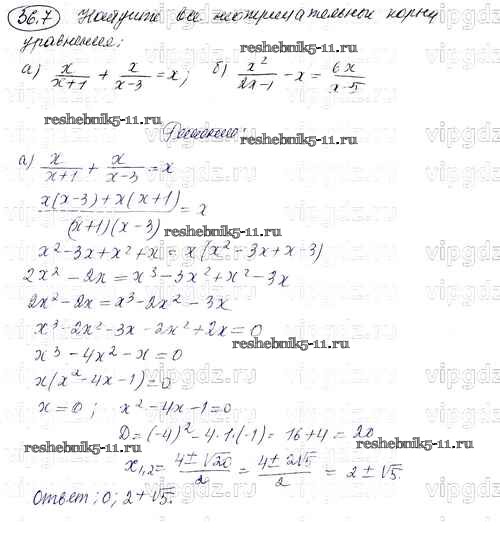 36.7 Найдите все неотрицательные корни
уравнения:
а) x/(x+1) + x/(x-3) = x; б) x²/(2x-1) - x = 6x/(x-5)
reshebnik5-11.ru reshebnik5-11.ru
Решение:
а) x/(x+1) + x/(x-3) = x
(x(x-3)+x(x+1))/((x+1)(x-3)) = x
reshebnik5-11.ru
x²-3x+x²+x = x(x²-3x+x-3)
2x²-2x = x³-3x²+x²-3x
2x²-2x = x³-2x²-3x
x³-2x²-3x-2x²+2x=0
reshebnik5-11.ru
x³-4x²-x=0
x(x²-4x-1)=0
x=0; x²-4x-1=0
D=(-4)²-4·1·(-1)=16+4=20
reshebnik5-11.ru reshebnik5-11.ru
x₁,₂ = (4±√20)/2 = (4±2√5)/2 = 2±√5.
Ответ: 0; 2+√5.
vipgdz.ru